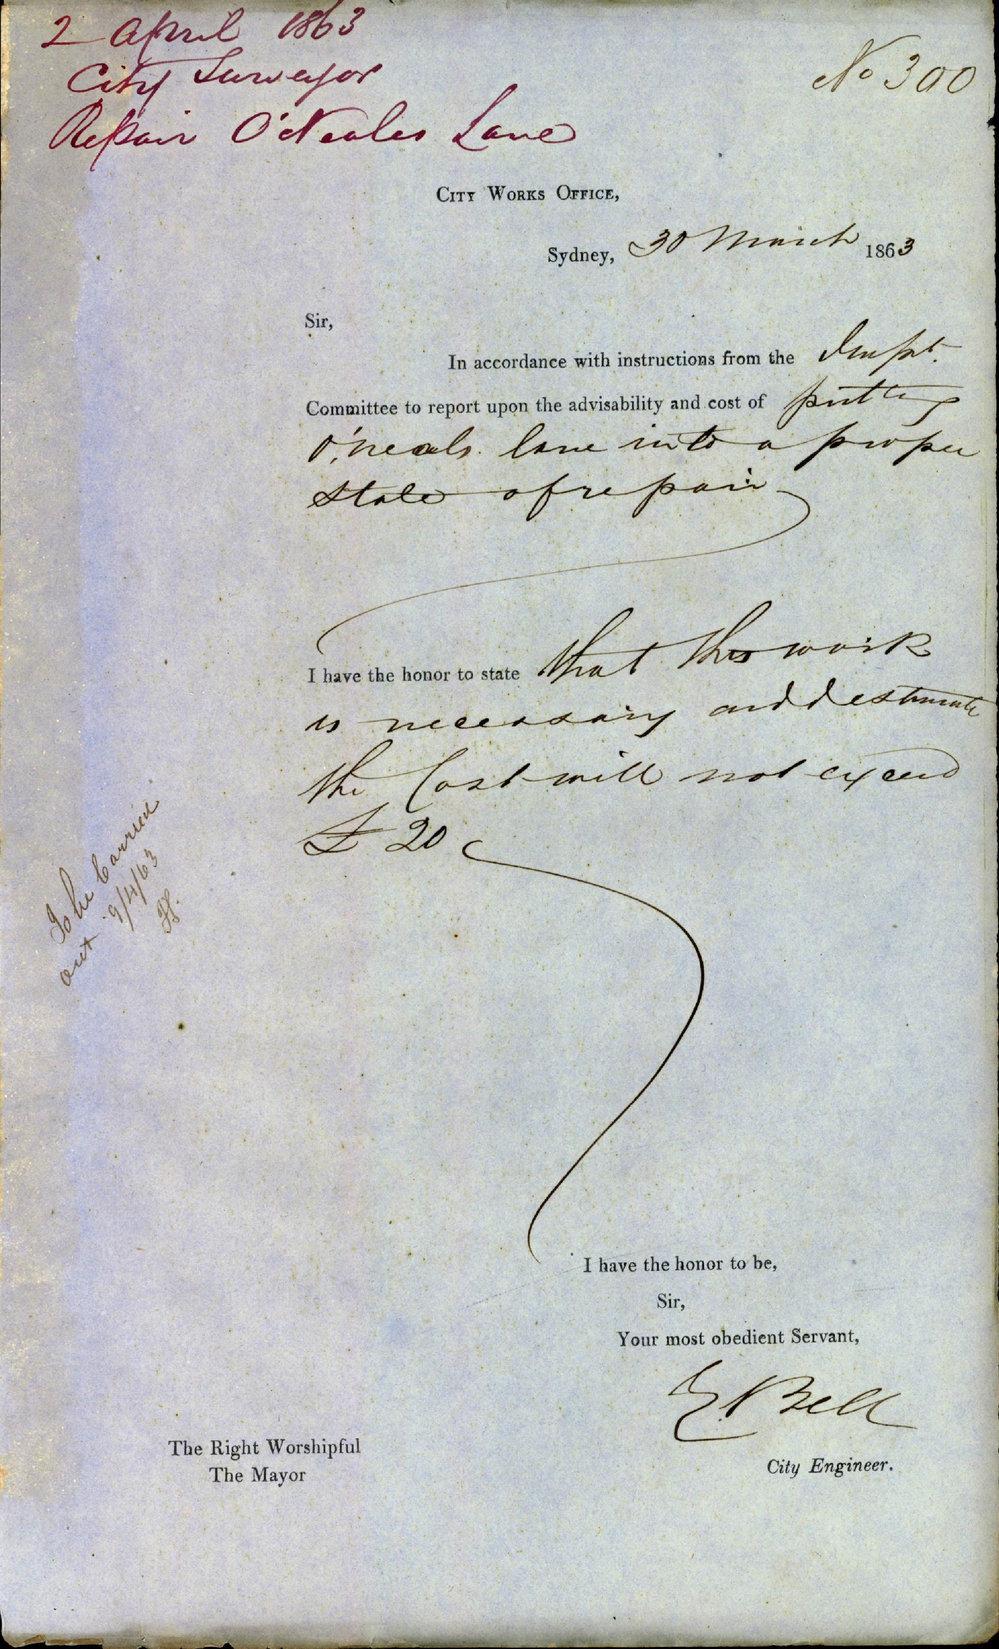 2 April 1863
City Surveyor
Repair O'Neales Lane
No 300
City Works Office,
Sydney, 30 March 1863
Sir,
In accordance with instructions from the Impt.
Committee to report upon the advisability and cost of putting
O'neals lane into a proper
state of repair
I have the honor to state that this work
is necessary and I estimate
the Cost will not exceed
£20
To be Carried
out 9/4/63
I have the honor to be,
Sir,
Your most obedient Servant,
E Bell
City Engineer.
The Right Worshipful
The Mayor